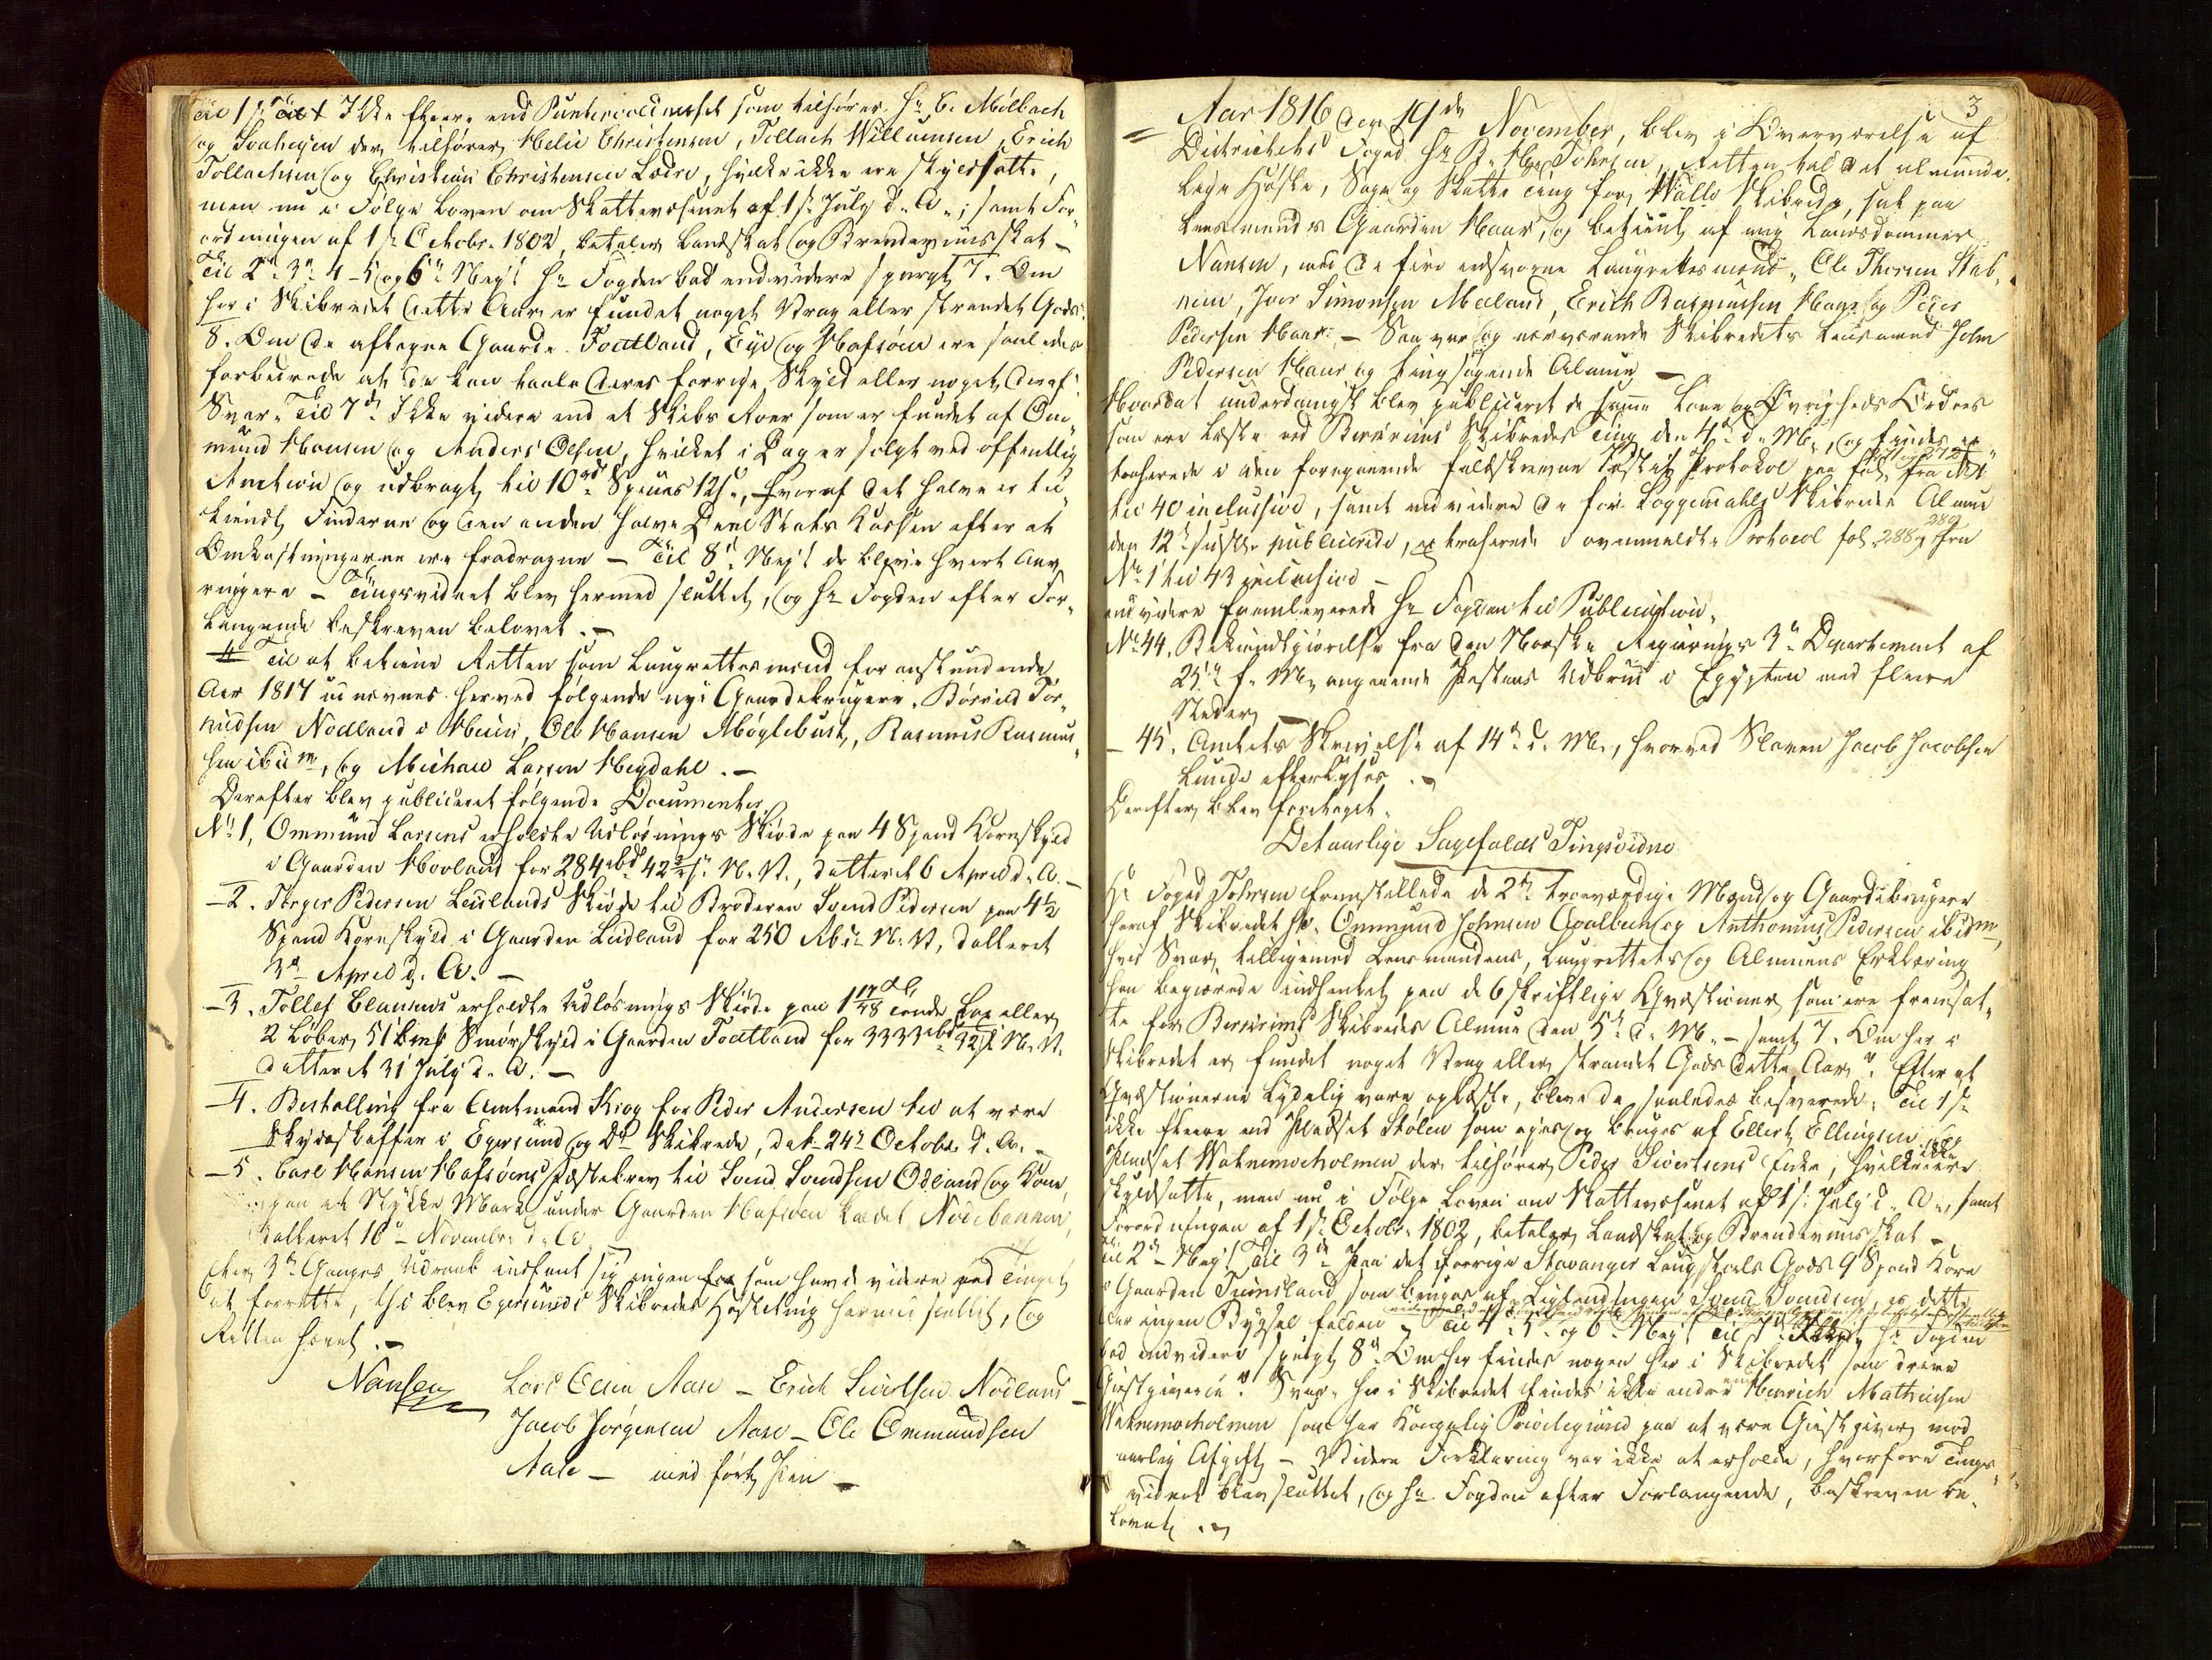 Til 1ste Ikke fleere end Puntervoldnæset som tilhører Hr C. Mølbach
og Svaheyen der tilhører Helie Christensen, Tollach Willumsen, Erich
Tollachsen og Christian Christensen Lædre, hvilke ikke ere skyldsatte,
men nu i Følge Loven om Skattevæsenet af 1ste July d. A., samt For-
ordningen af 1ste Octobr. 1802, betaler Landskat og Brændeviinsskat —
Til 2den 3die 4 - 5 og 6te Ney! Hr Fogden bad endvidere spurgt 7. Om
her i Skibredet dette Aar er fundet noget Vrag eller strandet Gods?
8. Om de aftagne Gaarde Foetland, Eye og Hafsøen ere saaledes
forbedrede at de kan taale deres forrige Skyld eller noget deraf?
Svar. Til 7de Ikke videre end et Skibs Roer som er fundet af Om-
mund Hansen og Anders Olsen, hvilket i Dag er solgt ved offentlig
Auction og udbragt til 10rd Species 12s., hvoraf det halve er til-
kiendt Finderne og den anden halve Deel Stats Kassen efter at
Omkostningerne ere fradragne — Til 8de Ney! de bleve hvert Aar
ringere — Tingsvidnet blev hermed sluttet, og Hr Fogden efter For-
langende beskreven belovet. —
Til at betiene Retten som Laugrettesmænd for anstundende
Aar 1817 udnævnes herved følgende nye Gaardebrugere, Børrild Tor-
kildsen Nodland i Heiii, Ole Hansen Møglebust, Rasmus Rasmus-
sen ibidm, og Michael Larsen Hegdahl. —
Derefter blev publiceret følgende Documenter
No 1, Ommund Larsens erholdte Udløsnings Skiøde paa 4 Spand Kornskyld
i Gaarden Hovland for 284rbd 42 2/5s. N. V., datteret 6 April d. A. —
— 2. Tørger Pedersen Leidlands Skiøde til Broderen Svend Pedersen paa 4 1/2
Spand Kornskyld i Gaarden Leidland for 250 Rbd. N. V, datteret
3die April d. A. —
— 3. Tollef Clausens erholdte Udløsnings Skiøde paa 1 17/48 Tønde eller
2 Løber, 51 Smørskyld i Gaarden Foetland for 3333rbd 32s N. V.
datteret 31 July d. A. —
— 4. Bestalling fra Amtmand Krog for Peder Andersen til at være
Skydsskaffer i Egersund og Do Skibrede, dat. 24de Octobr. d. A. —
— 5. Carl Hansen Hafsøens Fæstebrev til Svend Svendsen Odland og Kone
paa et Stykke Mark under Gaarden Hafsøen kaldet Nodebakken,
datteret 16de Novembr. d. A.
Efter 3de Ganges Udraab indfant sig ingen som havde videre ved Tinget
at forrette, thi blev Egersunds Skibredes Høstting hermed sluttet, og
Retten hævet. —
Nansen Lars Olsen Aase — Erich Sivertsen Nodland —
Jacob Jørgensen Aase — Ole Ommundsen
Aase — med ført Pen —
3
Aar 1816 den 19de November, blev i Overværelse af
Districtets Foged Hr P. Tohrsen, Retten hol det alminde-
lige Høste, Sage og Skatte Ting for Walle Skibrede, sat paa
Lensmands Gaarden Haar, og betient af mig Landsdommer
Nansen, med de fire eedsvorne Laugrettesmænd, Ole Thorsen Stab-
, Iver Simonsen Mæland, Erich Rasmussen Haar og Peder
Pedersen Haar. — Saa var og nærværende Skibredets Lensmand John
Pedersen Haar og tingsøgende Almue —
Hvordat underdanigst blev publiceret de samme Love og Øvrigheds Ordres
som ere læste ved Bierkrems Skibredes Ting den 4de d. M., og findes ex-
traherede i den foregaaende fuldskrevne Justits Protokol paa fol. fra No 1
til 40 inclusive, samt endvidere de for Soggendahls Skibredes Almue
den 12te publicerede, extraherede i ovenmeldte Protocol fol. 288 & 289 fra
No 1 til 43 inclusive —
endvidere fremleverede Hr Fogden til Publication.
No 44. Bekiendtgiørelse fra den Norske Regierings 3die Departement af
25de f. M., angaaende Pestens Udbrud i Egypten med fleere
Steder —
— 45. Amtets Skrivelse af 14de d. M., hvorved Slaven Jacob Jacobsen
Lunde efterlyses. —
Derefter blev foretaget.
Det aarlige Sagefalds Tingsvidne
Hr Foged Tohrsen fremstillede de 2de troværdige Mænd og Gaardebrugere
heraf Skibredet Hr. Ommund Johnsen og Anthonius Pedersen ibidm,
hvis Svar, tilligemed Lensmandens, Laugrettets og Almuens Erklæring
han begierede indhentet paa de 6 skriftlige Qvæstioner som ere fremsat-
te for Bierkrems Skibredes Almue den 5te d. M. — samt 7. Om her i
Skibredet er fundet noget Vrag eller strandet Gods dette Aar? Efter at
Qvæstionerne lydelig vare oplæste, bleve de saaledes besvarede: Til 1ste
ikke fleere end Pladset Stølen som eyes og bruges af Ellert Ellingsen og
Pladset Watnemoeholmen der tilhører Peder Sivertsens Enke, hvilke ikke ere
skyldsatte, men nu i Følge Loven om Skattevæsenet af 1ste July d. A., samt
Forordningen af 1ste Octobr. 1802, betaler Landskat og Brændeviinsskat —
Til 2den — Ney! Til 3die Paa det forrige Stavanger Laugstoels Gods 9 Spand Korn
i Gaarden som bruges af Svend Svendsen, er dette
Aar ingen Bygsel falden — Til 4, 5 og 6te Ney! Til 7de Hr Fogden
bad endvidere spurgt 8de Om her findes nogen her i Skibredet som drive
Giestgiverie? Svar. her i Skibredet findes ikke andre end Henrich Mathiesen
Watnemoeholmen som har Kongelig Privilegium paa at være Giestgiver mod
aarlig Afgift — Videre Forklaring var ikke at erholde, hvorfore Tings-
vidnet blev sluttet, og Hr Fogden efter Forlangende, beskreven be-
lovet. —